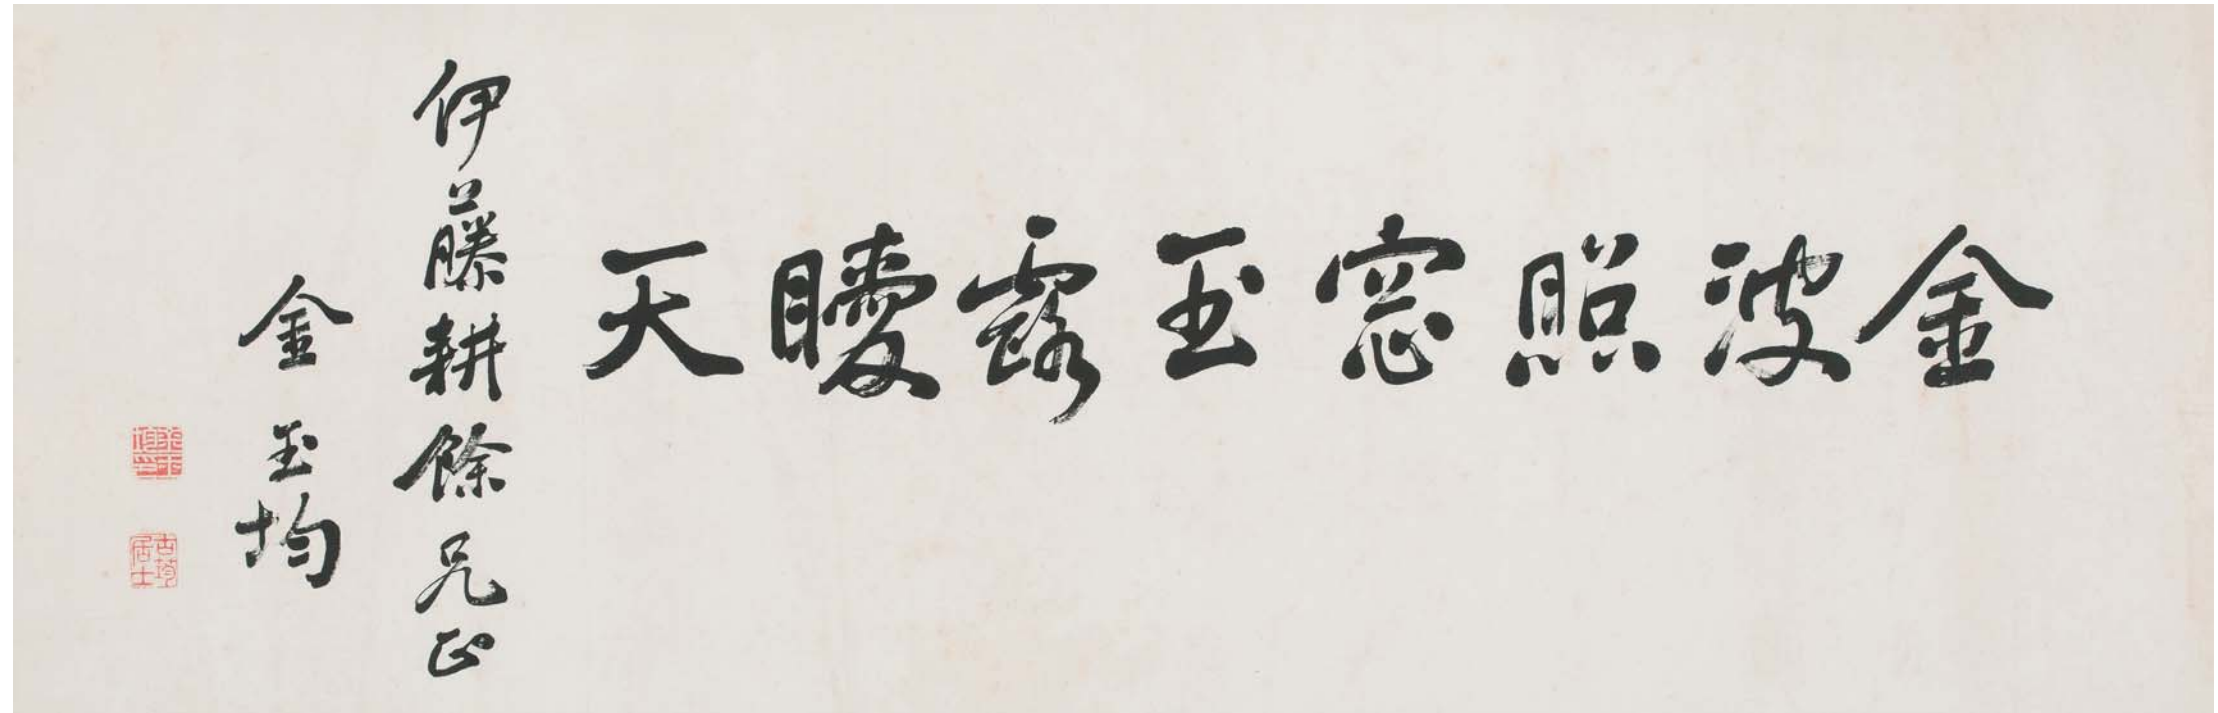 金波照窓玉露曖天
伊藤耕餘兄正
金玉均
古筠居士